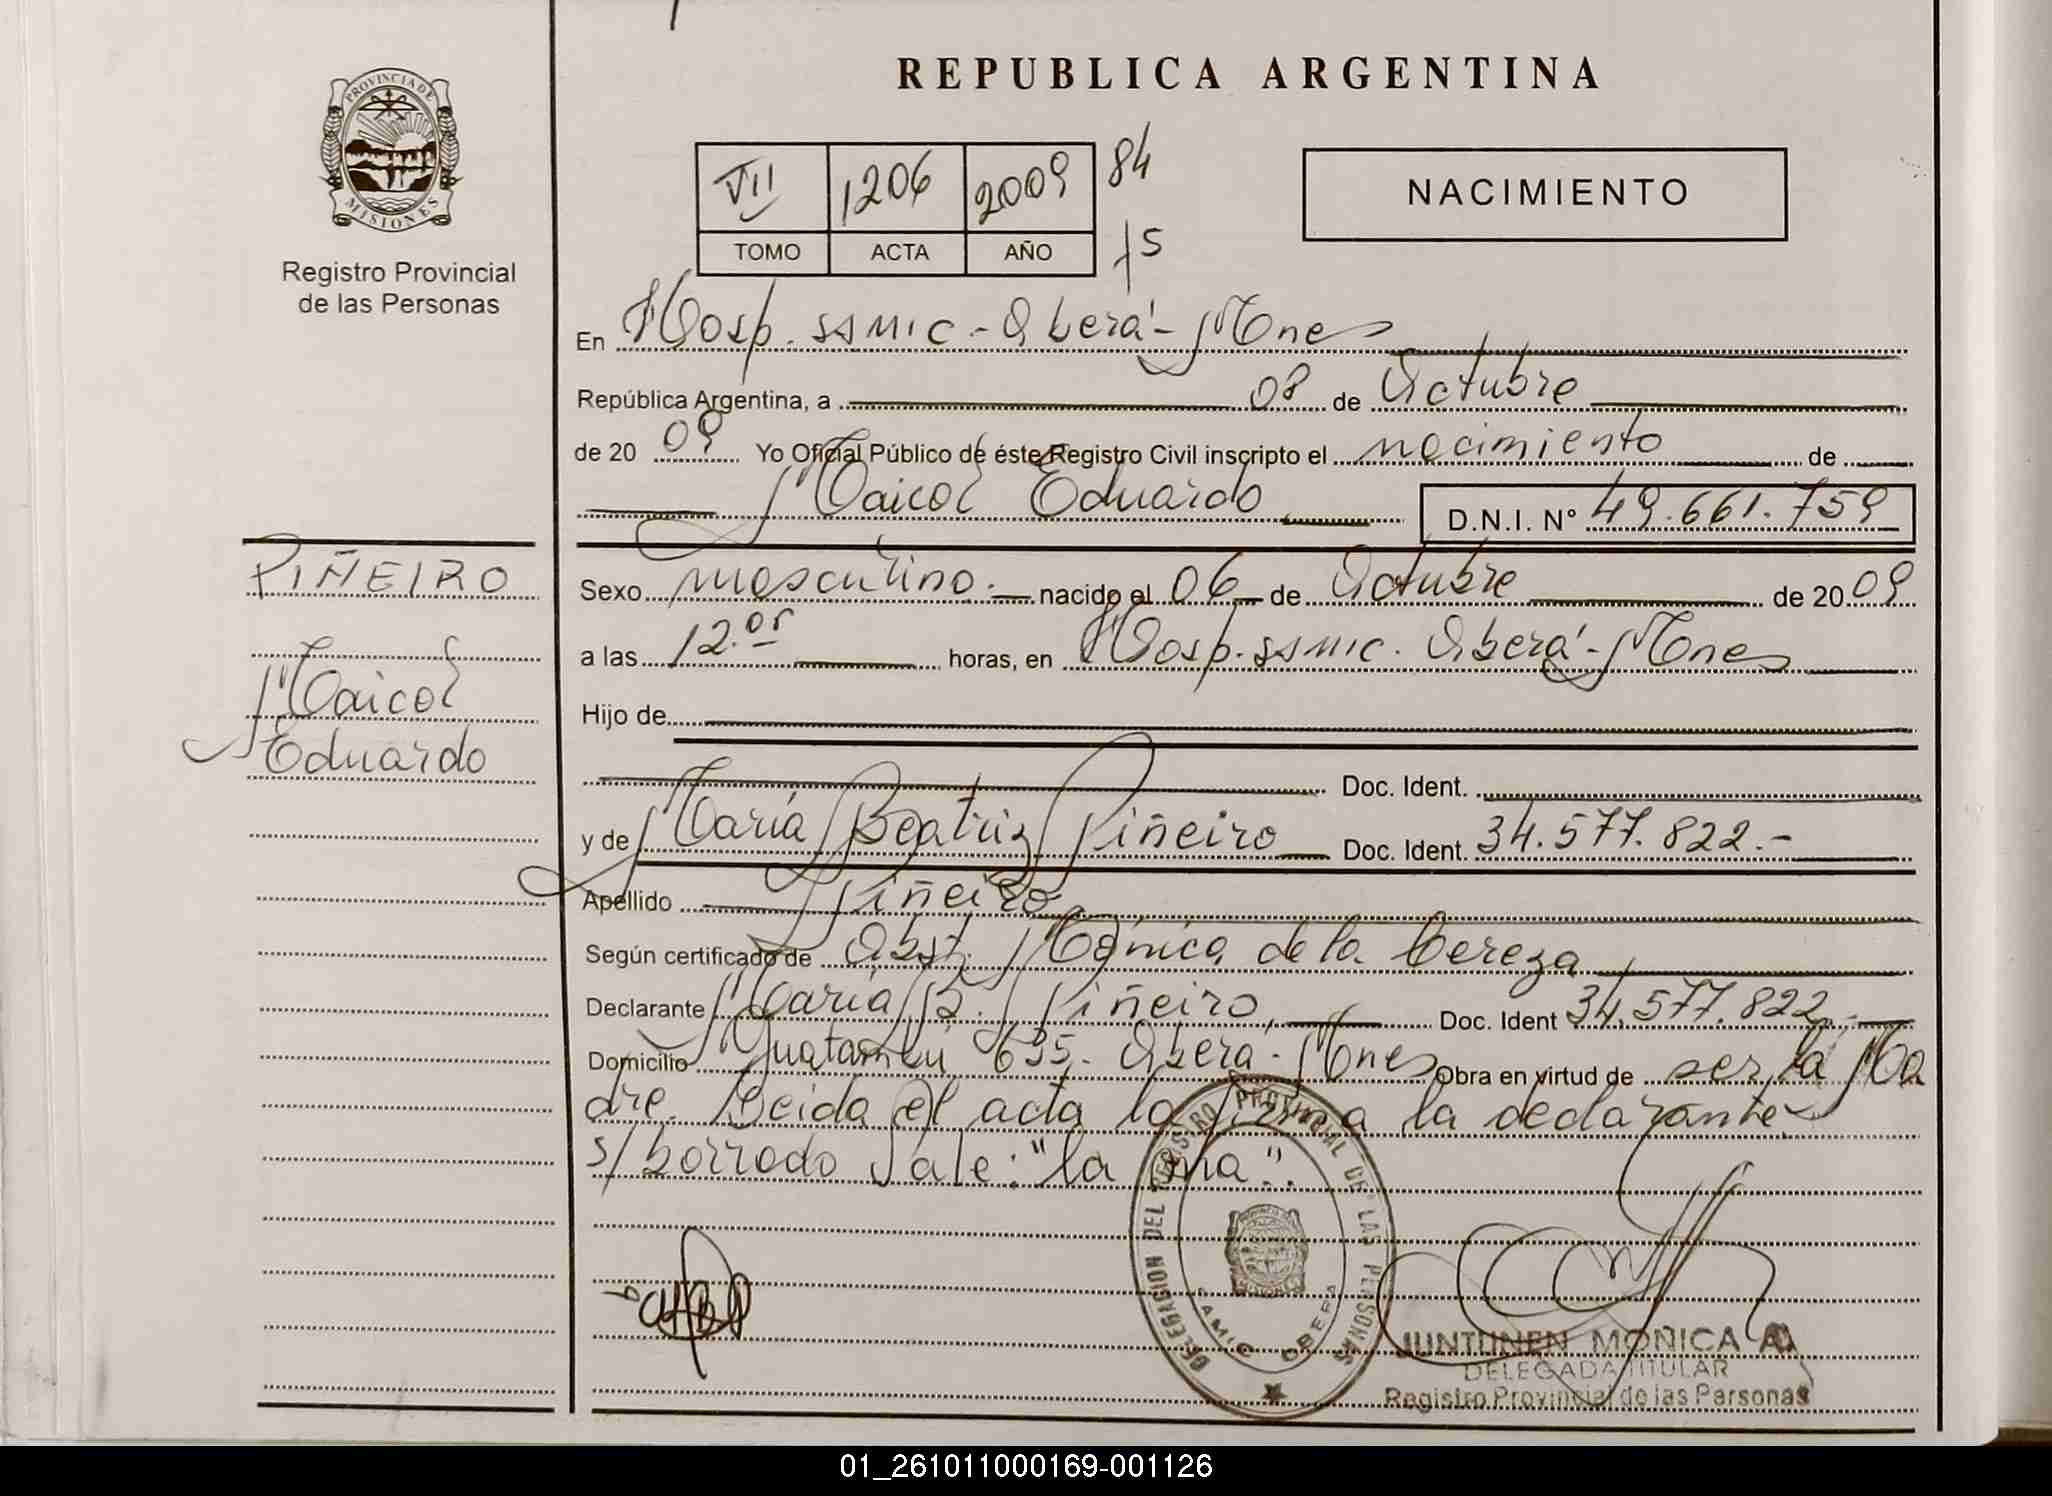 PROVINCIA DE
MISIONES
Registro Provincial
de las Personas
REPUBLICA ARGENTINA
VII 1206 2009 84
TOMO ACTA AÑO
NACIMIENTO
En Hosp. SAMIC - Oberá - Mnes
República Argentina, a 08 de Octubre
de 20 09 Yo Oficial Público de éste Registro Civil inscripto el nacimiento de
Maicol Eduardo D.N.I. N° 49.661.759
PIÑEIRO
Maicol
Eduardo
Sexo masculino.- nacido el 06 de Octubre de 20 09
a las 12.05 horas, en Hosp. SAMIC. Oberá - Mnes
Hijo de
Doc. Ident.
y de María Beatriz Piñeiro Doc. Ident. 34.577.822.-
Apellido Piñeiro
Según certificado de Obst. Mónica de la Cereza
Declarante María B. Piñeiro, Doc. Ident 34.577.822.-
Domicilio 635 - Oberá - Mnes Obra en virtud de ser la Ma
dre. Leida el acta la firma la declarante
s/borrado Vale: "la ma".
DELEGACION DEL REGISTRO PROVINCIAL DE LAS PERSONAS
SAMIC OBERA
JUNTUNEN MONICA A.
DELEGADA TITULAR
Registro Provincial de las Personas
01_261011000169-001126